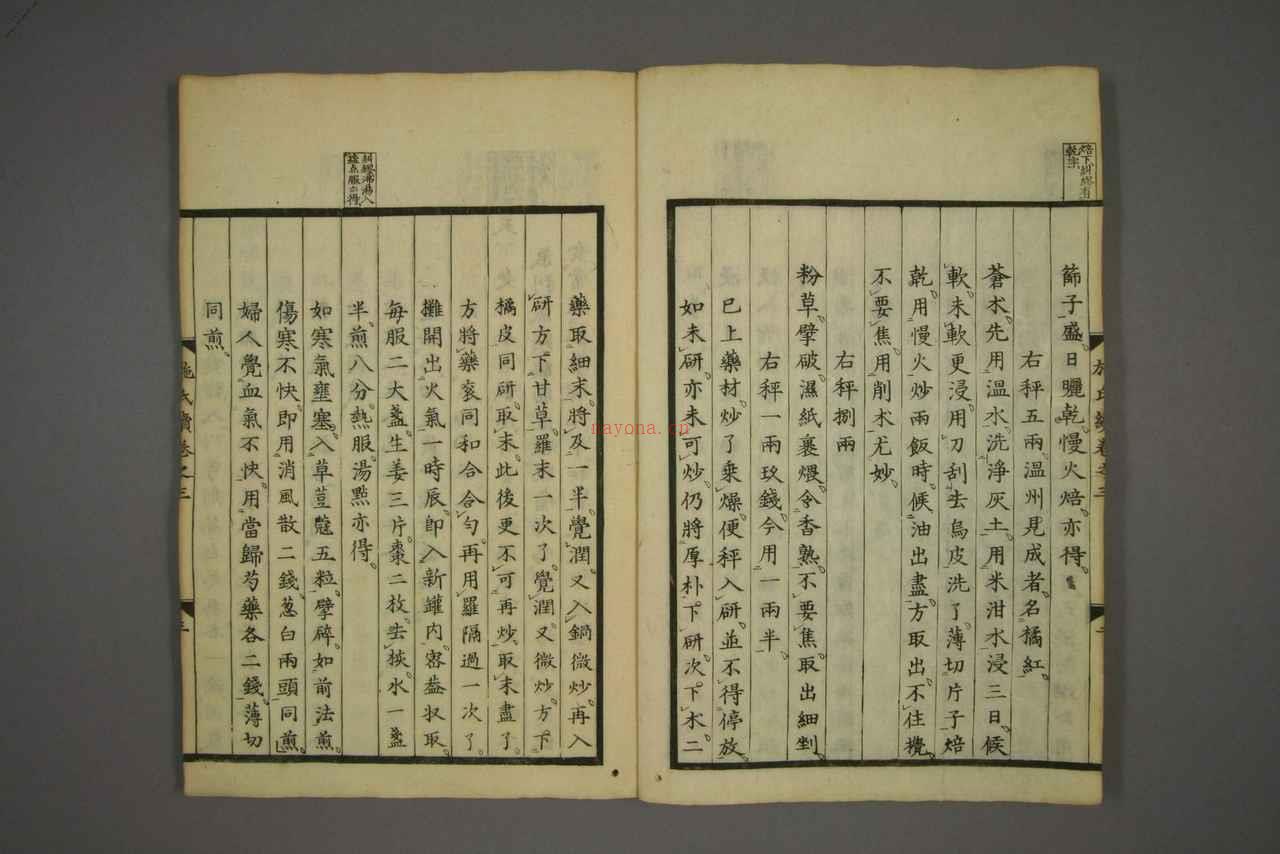 焙下糾繆有
乾字
篩子盛日曬乾慢火焙亦得
右秤五兩溫州見成者名橘紅
蒼朮先用溫水洗淨灰土用米泔水浸三日候
軟未軟更浸用刀刮去烏皮洗了薄切片子焙
乾用慢火炒兩飯時候油出盡方取出不住攪
不要焦用削朮尤妙
右秤捌兩
粉草擘破濕紙裹煨令香熟不要焦取出細剉
右秤一兩玖錢今用一兩半
已上藥材炒了乘燥便秤入研並不得停放
如未研亦未可炒仍將厚朴下研次下朮二
施氏續卷之三
二
藥取細末將及一半覺潤又入鍋微炒再入
研方下甘草羅末一次了覺潤又微炒方下
橘皮同研取末此後更不可再炒取末盡了
方將藥衮同和合合勻再用羅隔過一次了
攤開出火氣一時辰卽入新罐內密蓋收取
每服二大盞生姜三片棗二枚去核水一盞
半煎八分熱服湯點亦得
如寒氣壅塞入草荳蔻五粒擘碎如前法煎
傷寒不快卽用消風散二錢葱白兩頭同煎
婦人覺血氣不快用當歸芍藥各二錢薄切
同煎
糾繆沸湯入
鹽点服亦得
施氏續卷之三
三
nayona.cn